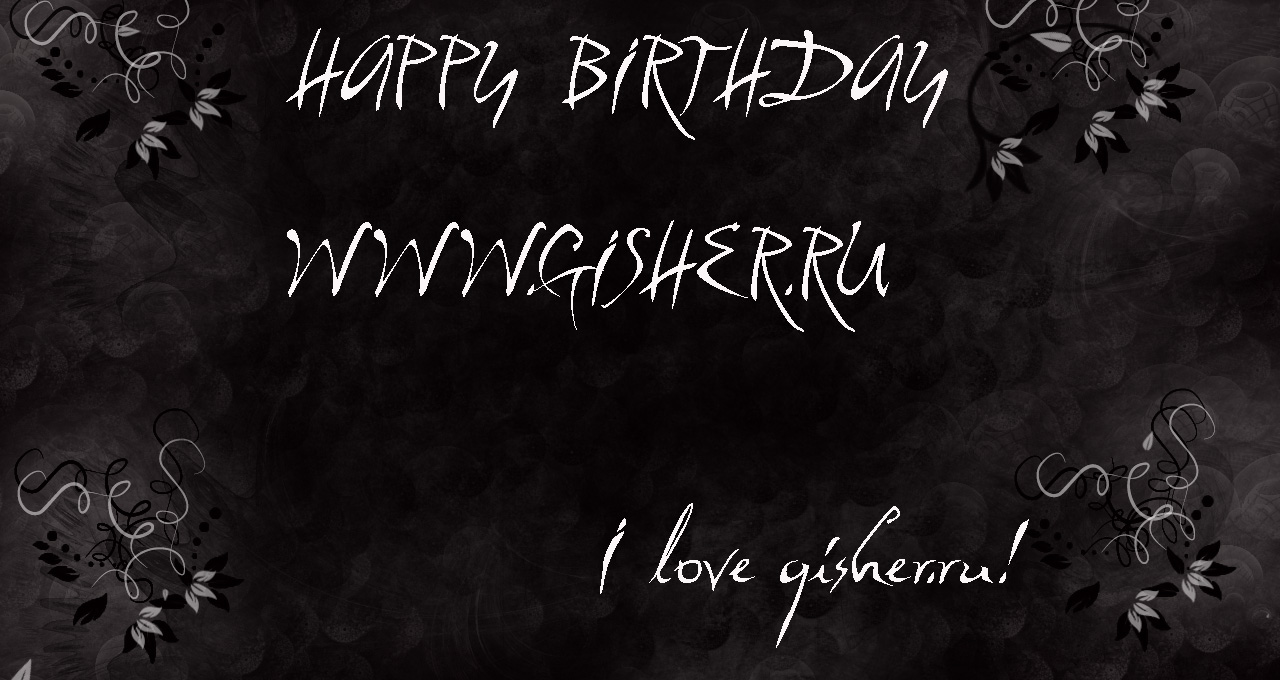 HaPPy BiRTHDay
WWW.GiSHER.RU
I love gisher.ru!